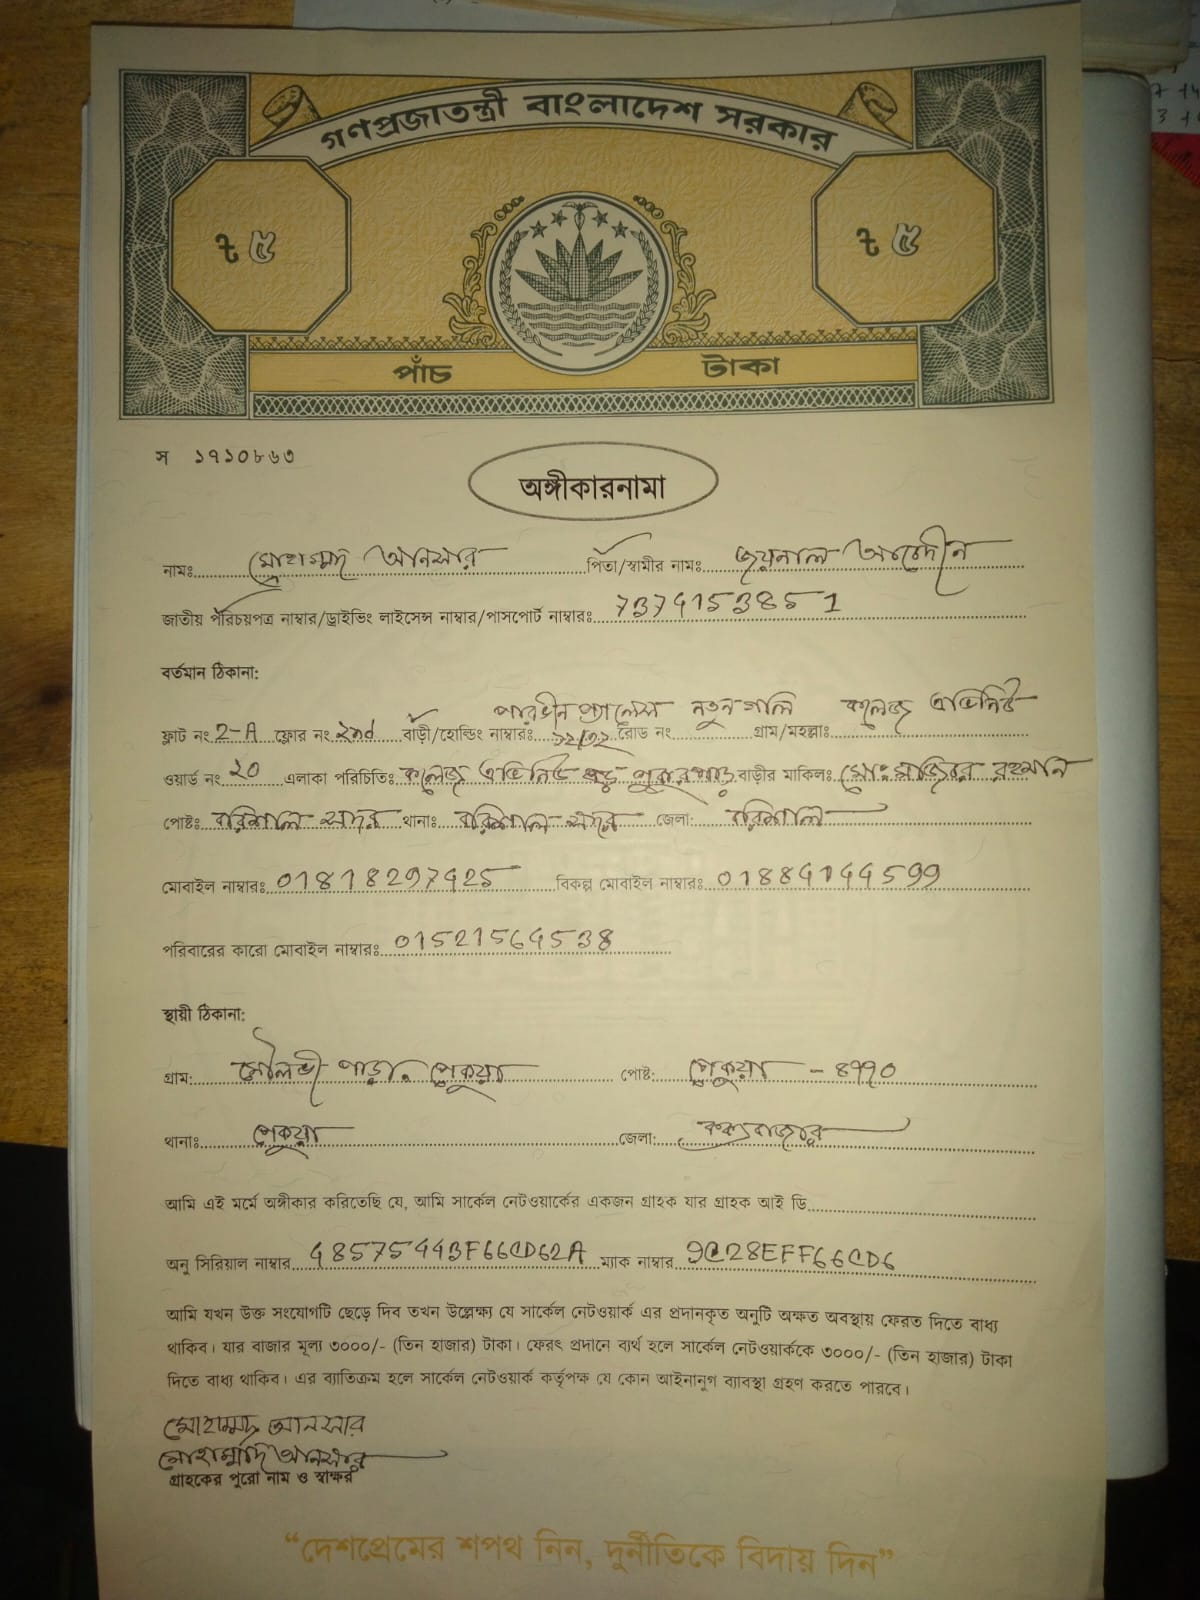 গণপ্রজাতন্ত্রী বাংলাদেশ সরকার
৳ ৫ ৳ ৫
পাঁচ টাকা
স ১৭১০৮৬৩
অঙ্গীকারনামা
নামঃ মোহাম্মদ আনসার পিতা/স্বামীর নামঃ জয়নাল আবেদীন
জাতীয় পরিচয়পত্র নাম্বার/ড্রাইভিং লাইসেন্স নাম্বার/পাসপোর্ট নাম্বারঃ 7374153851
বর্তমান ঠিকানা:
পারভীন প্যালেস নতুন গলি কলেজ এভিনিউ
ফ্লাট নং 2-A ফ্লোর নং 2nd বাড়ী/হোল্ডিং নাম্বারঃ রোড নং গ্রাম/মহল্লাঃ
ওয়ার্ড নং 20 এলাকা পরিচিতিঃ কলেজ এভিনিউ পুকুরপাড় বাড়ীর মালিকঃ মোঃ রহমান
পোষ্টঃ বরিশাল সদর থানাঃ বরিশাল সদর জেলা: বরিশাল
মোবাইল নাম্বারঃ 01818297425 বিকল্প মোবাইল নাম্বারঃ 01884144599
পরিবারের কারো মোবাইল নাম্বারঃ 01521564538
স্থায়ী ঠিকানা:
গ্রাম: মৌলভী পাড়া, পেকুয়া পোষ্ট: পেকুয়া - ৪৭৭০
থানাঃ পেকুয়া জেলা: কক্সবাজার
আমি এই মর্মে অঙ্গীকার করিতেছি যে, আমি সার্কেল নেটওয়ার্কের একজন গ্রাহক যার গ্রাহক আই ডি
অনু সিরিয়াল নাম্বার 48575443F66CD62A ম্যাক নাম্বার 9C28EFF66CD6
আমি যখন উক্ত সংযোগটি ছেড়ে দিব তখন উল্লেক্ষ্য যে সার্কেল নেটওয়ার্ক এর প্রদানকৃত অনুটি অক্ষত অবস্থায় ফেরত দিতে বাধ্য
থাকিব। যার বাজার মূল্য ৩০০০/- (তিন হাজার) টাকা। ফেরৎ প্রদানে ব্যর্থ হলে সার্কেল নেটওয়ার্ককে ৩০০০/- (তিন হাজার) টাকা
দিতে বাধ্য থাকিব। এর ব্যাতিক্রম হলে সার্কেল নেটওয়ার্ক কর্তৃপক্ষ যে কোন আইনানুগ ব্যাবস্থা গ্রহণ করতে পারবে।
মোহাম্মদ আনসার
মোহাম্মদ আনসার
গ্রাহকের পুরো নাম ও স্বাক্ষর
“দেশপ্রেমের শপথ নিন, দুর্নীতিকে বিদায় দিন”